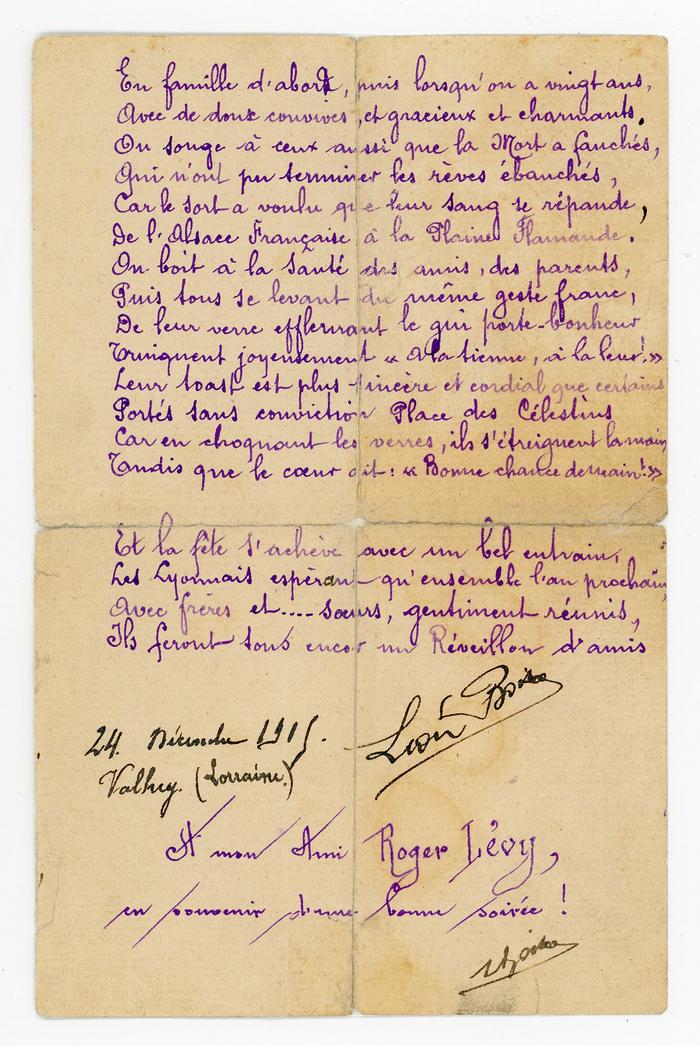 En famille d'abord, puis lorsqu'on a vingt ans,
Avec de doux convives, et gracieux et charmants.
On songe à ceux aussi que la Mort a fauchés,
Qui n'ont pu terminer les rêves ébauchés,
Car le sort a voulu que leur sang se répande,
De l'Alsace Française à la Plaine Flamande.
On boit à la santé des amis, des parents,
Puis tous se levant du même geste franc,
De leur verre effleurant le gui porte-bonheur
Trinquent joyeusement « À la tienne, à la leur! »
Leur toast est plus sincère et cordial que certains
Portés sans conviction Place des Célestins
Car en choquant les verres, ils s'étreignent la main,
Tandis que le cœur dit : « Bonne chance demain! »
Et la fête s'achève avec un bel entrain,
Les Lyonnais espérant qu'ensemble l'an prochain,
Avec frères et.... sœurs, gentiment réunis,
Ils feront tous encor un Réveillon d'amis
Léon
24 Décembre 1915.
(Lorraine.)
A mon Ami Roger Lévy,
en souvenir d'une bonne soirée !